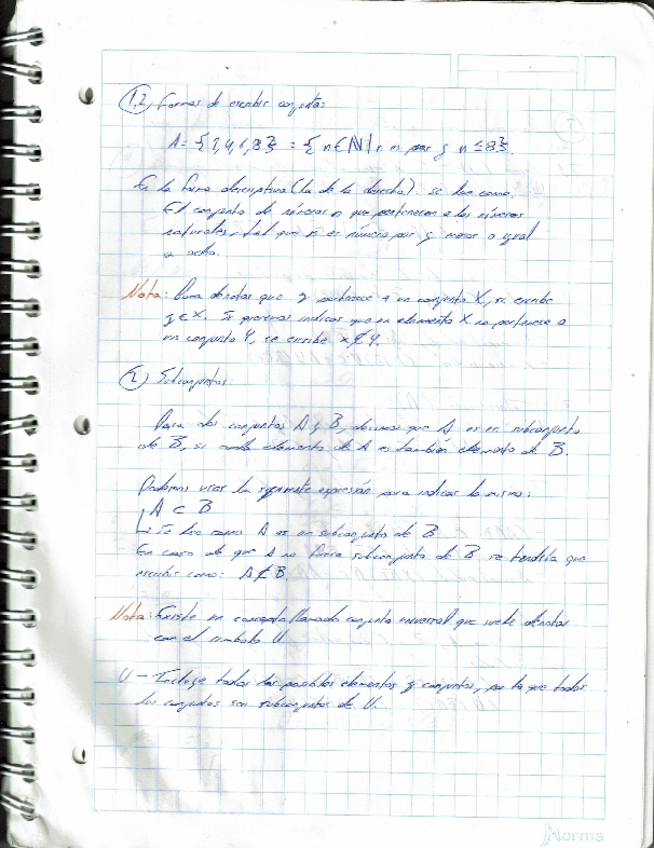 1.2 Formas de escribir conjuntos
A = {2,4,6,8} = { n ∈ ℕ | n es par y n ≤ 8}.
En la forma descriptiva (la de la derecha) se lee como:
El conjunto de números n que pertenecen a los números
naturales, tal que n es número par y menor o igual
a ocho.
Nota: Para denotar que y pertenece a un conjunto X, se escribe
y ∈ X. Si queremos indicar que un elemento X no pertenece a
un conjunto Y, se escribe x ∉ Y.
2 Subconjuntos:
Para dos conjuntos A y B, decimos que A es un subconjunto
de B, si cada elemento de A es también elemento de B.
Podemos usar la siguiente expresión para indicar lo mismo:
A ⊂ B
Se lee como A es un subconjunto de B
En caso de que A no fuera subconjunto de B se tendría que
escribir como: A ⊄ B.
Nota: Existe un concepto llamado conjunto universal que suele denotar
con el símbolo U
U - Incluye todos los posibles elementos y conjuntos, por lo que todos
los conjuntos son subconjuntos de U.
Norma